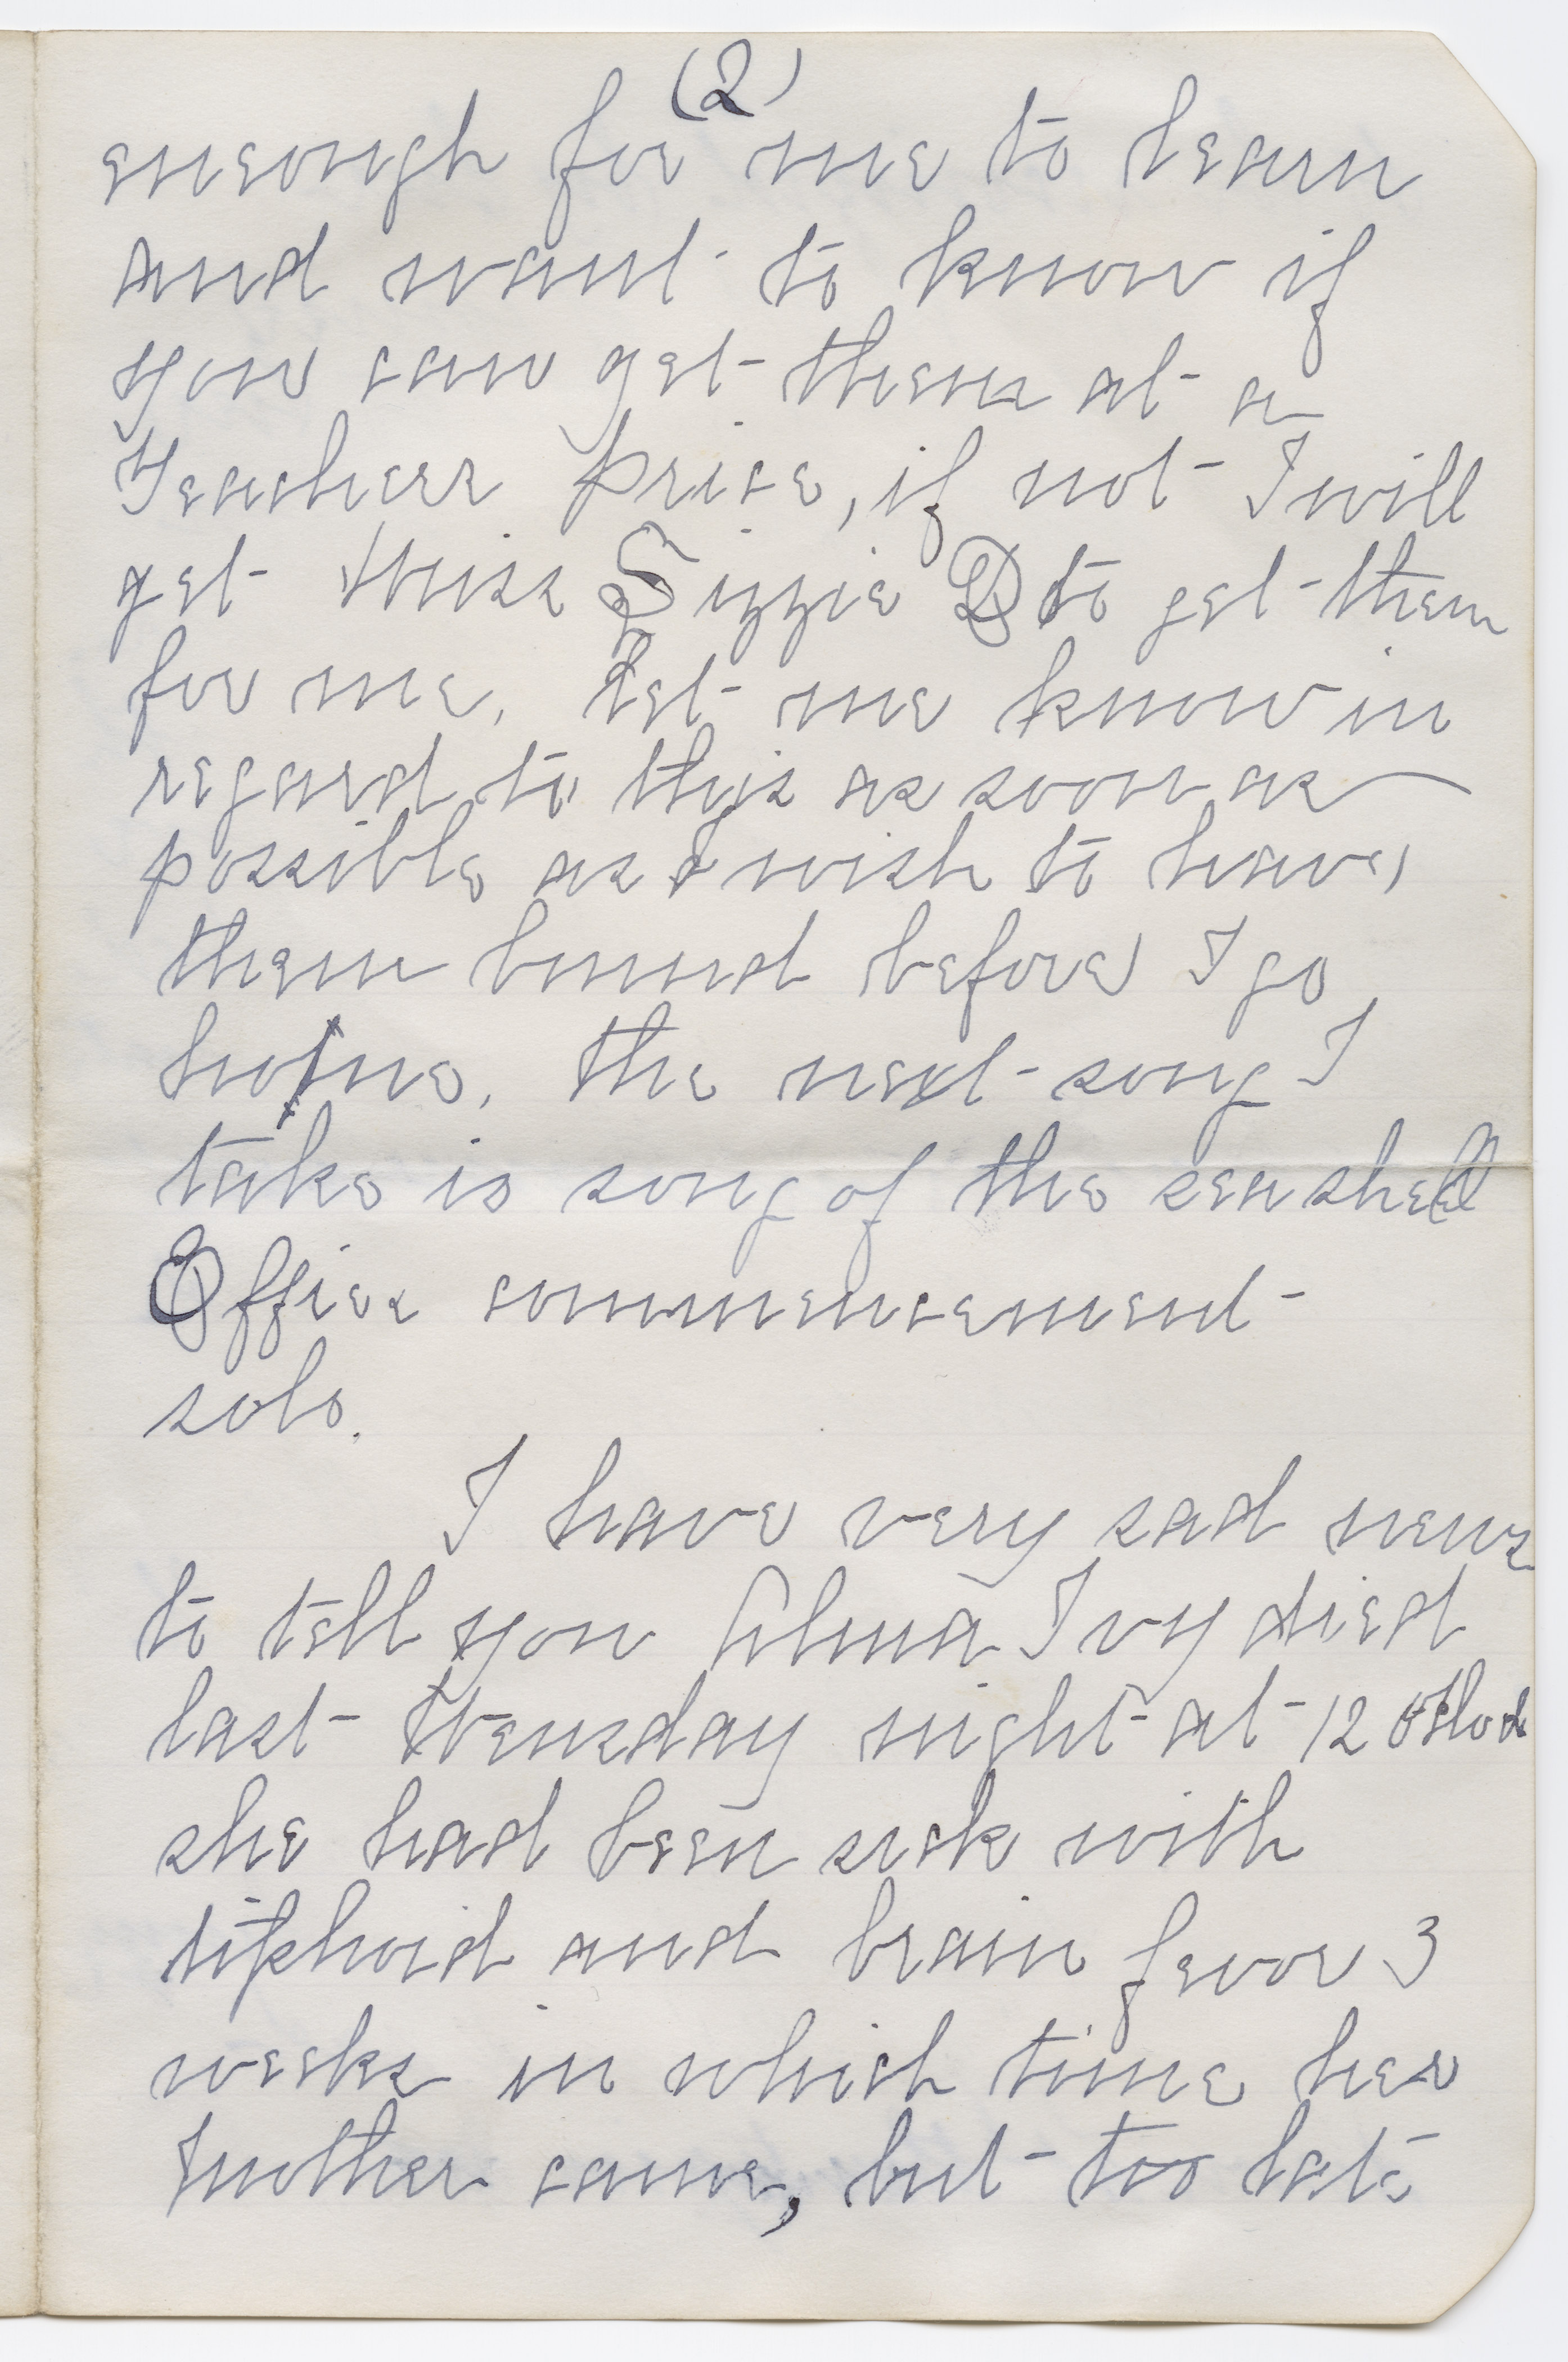 (2)
eneough for me to learn
and want to know if
you can get them at a
Teachers price, if not I will
get Miss Lizzie D to get them
for me. Let me know in
regard to this as soon as
possible as I wish to have
them bound before I go
home. The next song I
take is song of the sea shell
Office commencement
solo.
I have very sad news
to tell you Alma Ivy died
last Tuesday night at 12
she had been sick with
tiphoid and brain fevor 3
weeks in which time her
mother came, but too late